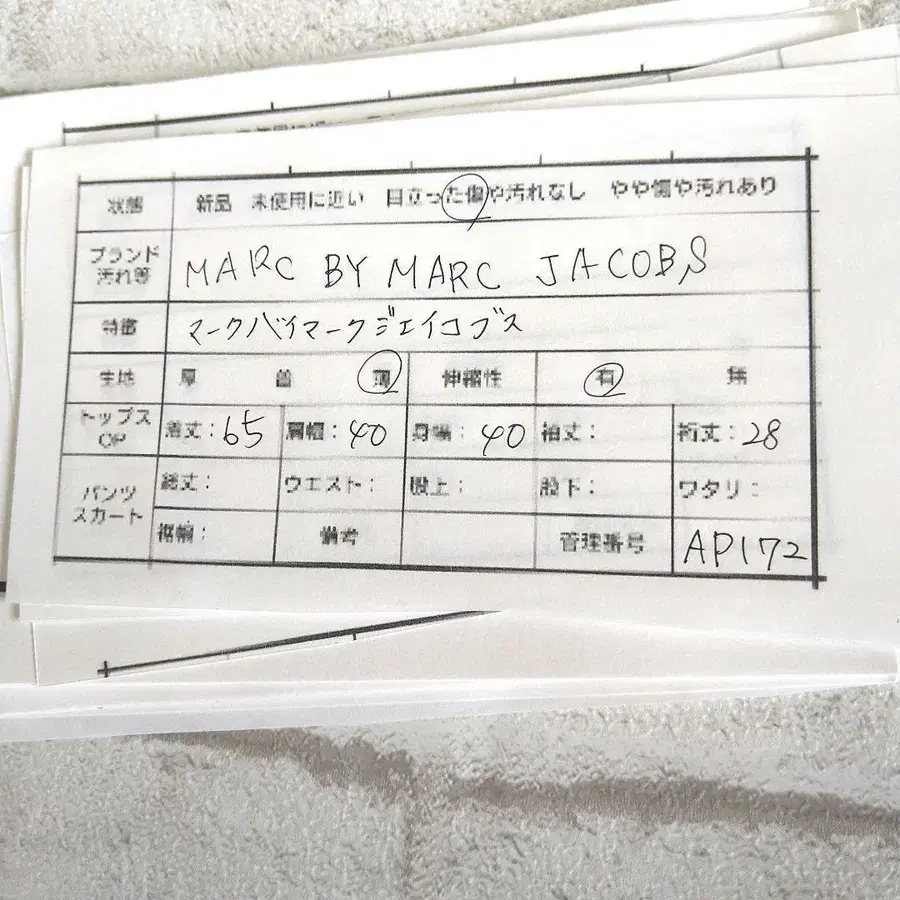 状態 新品 未使用に近い 目立った傷や汚れなし やや傷や汚れあり
ブランド 汚れ等 MARC BY MARC JACOBS
特徴 マークバイマークジェイコブス
生地 厚 普 薄 伸縮性 有 無
トップス OP 着丈:65 肩幅:40 身幅:40 袖丈: 裄丈:28
パンツ スカート 総丈: ウエスト: 股上: 股下: ワタリ:
裾幅: 備考 管理番号 AP172